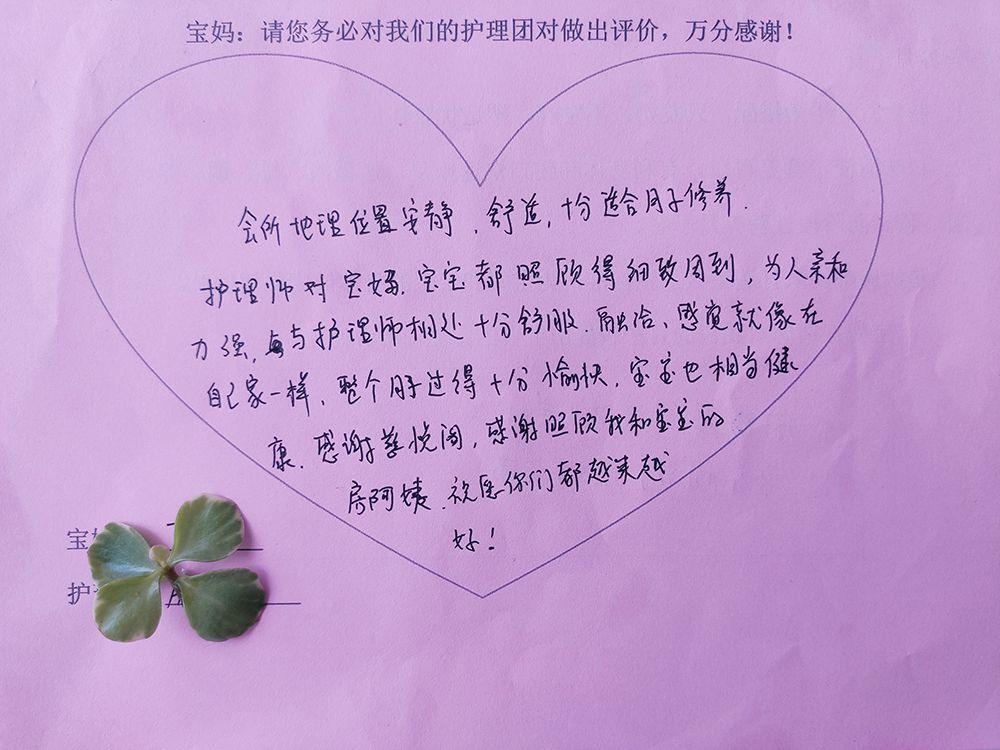 宝妈：请您务必对我们的护理团对做出评价，万分感谢！
会所地理位置安静、舒适，十分适合月子修养.
护理师对宝妈、宝宝都照顾得细致周到，为人亲和
力强，与护理师相处十分舒服、融洽、感觉就像在
自己家一样，整个月子过得十分愉快，宝宝也相当健
康、感谢慈悦阁，感谢照顾我和宝宝的
房阿姨、祝愿你们都越来越
好！
宝
护